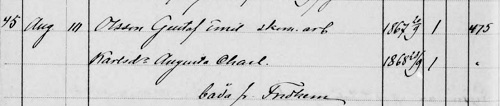 45 Aug 10 Olsson Gustaf Emil skom. arb 1867 20/9 1 475
Karlsdr Augusta Charl. 1868 23/9 1 "
båda fr. Fridhem